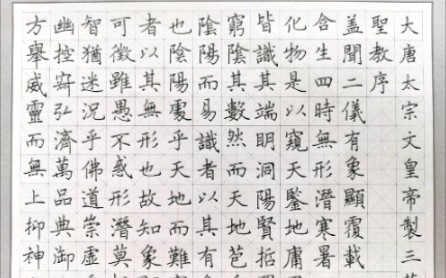 大唐太宗文皇帝製三
聖教序
蓋聞二儀有象顯覆載
含生四時無形潛寒暑
化物是以窺天鑒地庸
皆識其端明洞陽賢
窮其數然而天地苞
陰陽而易識者以其有
也陰陽處乎天地而難
者以其無形也故知象
可徵雖愚不惑形潛莫
智猶迷況乎佛道崇虛
幽控寂弘濟萬品典御
方舉威靈而無上抑神